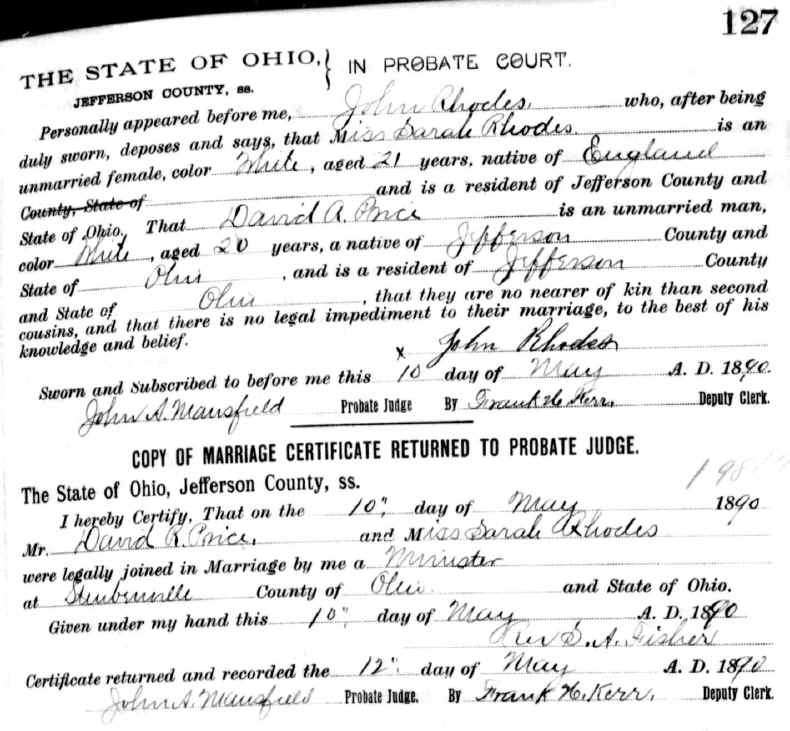 127
THE STATE OF OHIO, } IN PROBATE COURT.
JEFFERSON COUNTY, ss.
Personally appeared before me, John Rhodes, who, after being
duly sworn, deposes and says, that Miss Sarah Rhodes is an
unmarried female, color White, aged 21 years, native of England
County, State of and is a resident of Jefferson County and
State of Ohio. That David A. Price is an unmarried man,
color White, aged 20 years, a native of Jefferson County and
State of Ohio, and is a resident of Jefferson County
and State of Ohio, that they are no nearer of kin than second
cousins, and that there is no legal impediment to their marriage, to the best of his
knowledge and belief.
x John Rhodes
Sworn and Subscribed to before me this 10 day of May A. D. 1890.
John A. Mansfield Probate Judge By Frank H. Kerr, Deputy Clerk.
COPY OF MARRIAGE CERTIFICATE RETURNED TO PROBATE JUDGE.
The State of Ohio, Jefferson County, ss.
I hereby Certify, That on the 10" day of May 1890
Mr. David Price, and Miss Sarah Rhodes
were legally joined in Marriage by me a Minister
at Steubenville County of Ohio and State of Ohio.
Given under my hand this 10" day of May A. D. 1890
Rev S. A. Fisher
Certificate returned and recorded the 12" day of May A. D. 1890
John A. Mansfield Probate Judge. By Frank H. Kerr, Deputy Clerk.